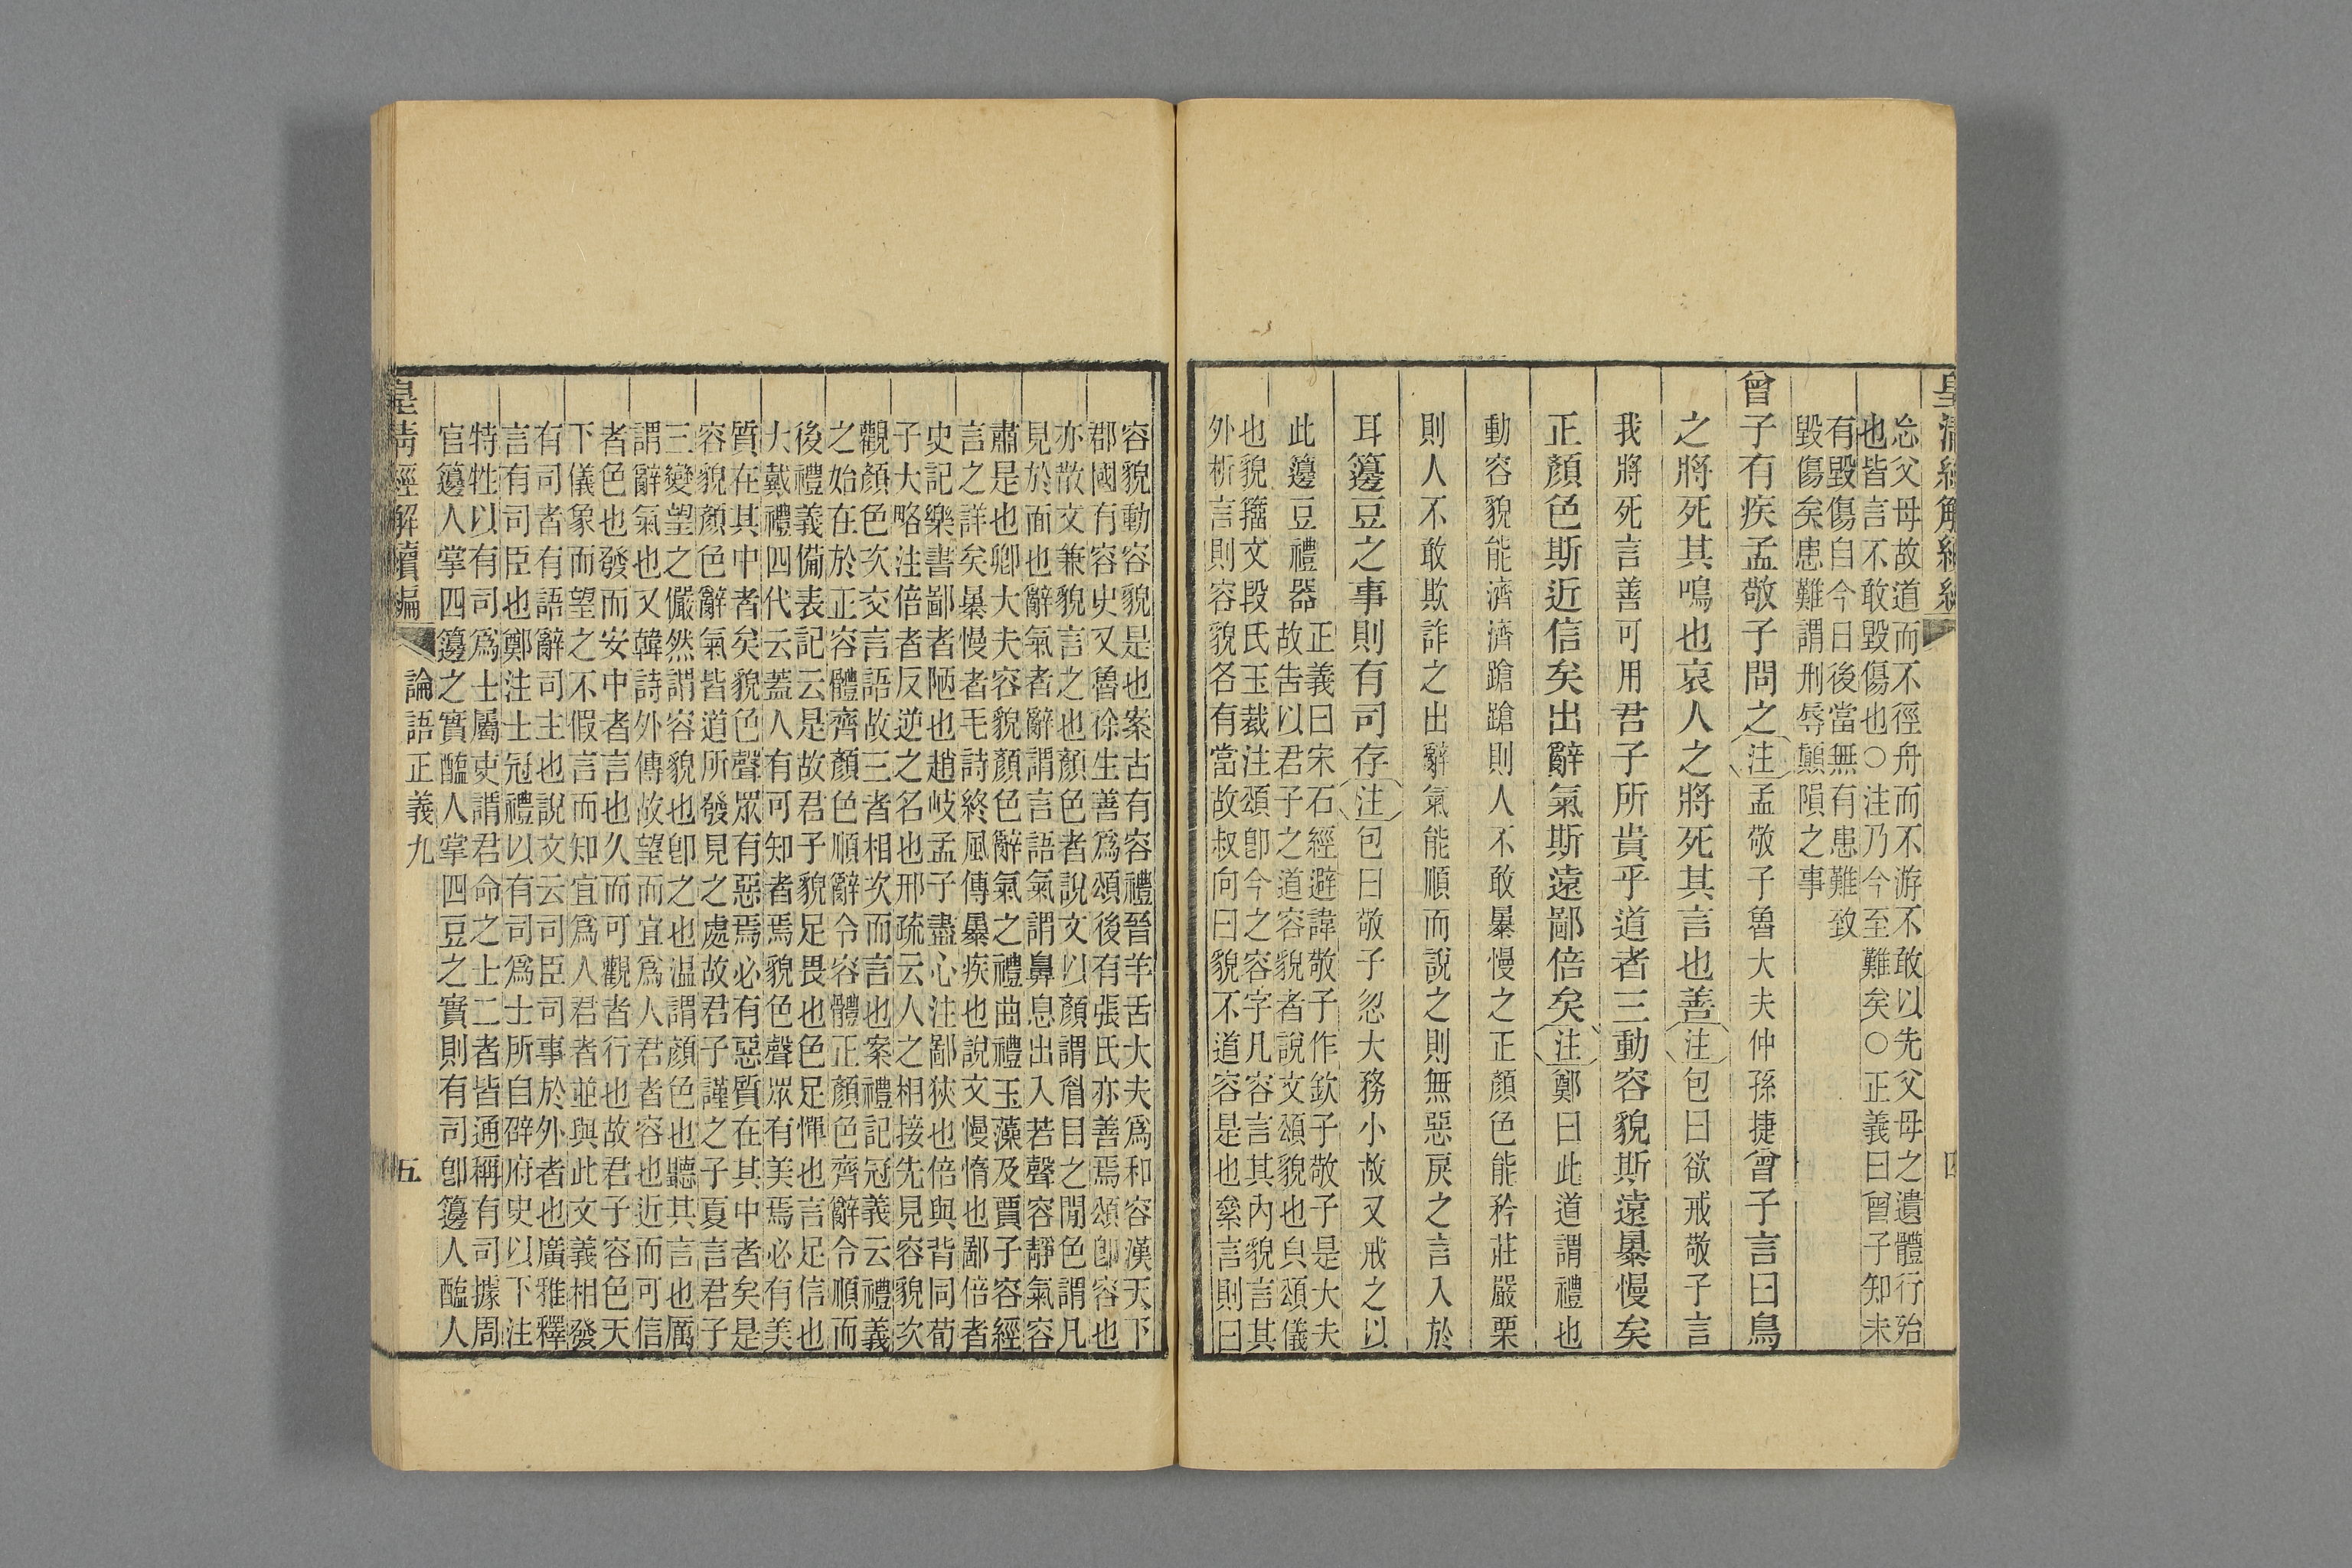 皇清經解續編
四
忘父母故道而不徑舟而不游不敢以先父母之遺體行殆
也皆言不敢毀傷也○注乃今至難矣○正義曰曾子知未
有毀傷自今日後當無有患難致
毀傷矣患難謂刑辱顛隕之事
曾子有疾孟敬子問之注孟敬子魯大夫仲孫捷曾子言曰鳥
之將死其鳴也哀人之將死其言也善注包曰欲戒敬子言
我將死言善可用君子所貴乎道者三動容貌斯遠暴慢矣
正顏色斯近信矣出辭氣斯遠鄙倍矣注鄭曰此道謂禮也
動容貌能濟濟蹌蹌則人不敢暴慢之正顏色能矜莊嚴栗
則人不敢欺詐之出辭氣能順而說之則無惡戾之言入於
耳籩豆之事則有司存注包曰敬子忽大務小故又戒之以
此籩豆禮器
正義曰宋石經避諱敬子作欽子敬子是大夫
故告以君子之道容貌者說文頌貌也皃頌儀
也貌籀文段氏玉裁注頌卽今之容字凡容言其內貌言其
外析言則容貌各有當故叔向曰貌不道容是也絫言則曰
容貌動容貌是也案古有容禮晉羊舌大夫爲和容漢天下
郡國有容史又魯徐生善爲頌後有張氏亦善焉頌卽容也
亦散文兼貌言之也顏色者說文以顏謂眉目之閒色謂凡
見於面也辭氣者辭謂言語氣謂鼻息出入若聲容靜氣容
肅是也卿大夫容貌顏色辭氣之禮曲禮玉藻及賈子容經
言之詳矣暴慢者毛詩終風傳暴疾也說文慢惰也鄙倍者
史記樂書鄙者陋也趙岐孟子盡心注鄙狹也倍與背同荀
子大略注倍者反逆之名也邢疏云人之相接先見容貌次
觀顏色次交言語故三者相次而言也案禮記冠義云禮義
之始在於正容體齊顏色順辭令容體正顏色齊辭令順而
後禮義備表記云是故君子貌足畏也色足憚也言足信也
大戴禮四代云蓋人有可知者焉貌色聲眾有美焉必有美
質在其中者矣貌色聲眾有惡焉必有惡質在其中者矣是
容貌顏色辭氣皆道所發見之處故君子謹之子夏言君子
三變望之儼然謂容貌也卽之也溫謂顏色也聽其言也厲
謂辭氣也又韓詩外傳故望而宜爲人君者容也近而可信
者色也發而安中者言也久而可觀者行也故君子容色天
下儀象而望之不假言而知宜爲人君者並與此文義相發
有司者有語辭司主也說文云司臣司事於外者也廣雅釋
言有司臣也鄭注士冠禮以有司爲士所自辟府史以下注
特牲以有司爲士屬吏謂君命之士二者皆通稱有司據周
官籩人掌四籩之實醢人掌四豆之實則有司卽籩人醢人
皇清經解續編
論語正義九
五